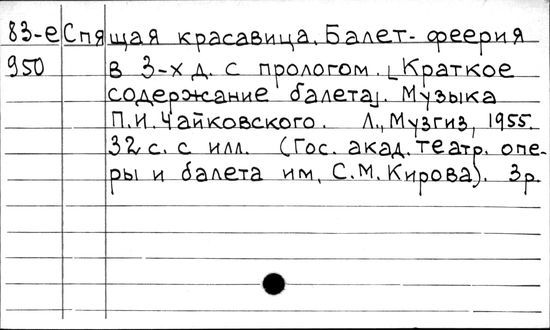 83-е Спящая красавица. Балет-феерия
950 в 3-х д. с прологом. [Краткое
содержание балета]. Музыка
П.И. Чайковского. Л., Музгиз, 1955.
32 с. с илл. (Гос. акад. театр. опе-
ры и балета им. С.М. Кирова). 3р.